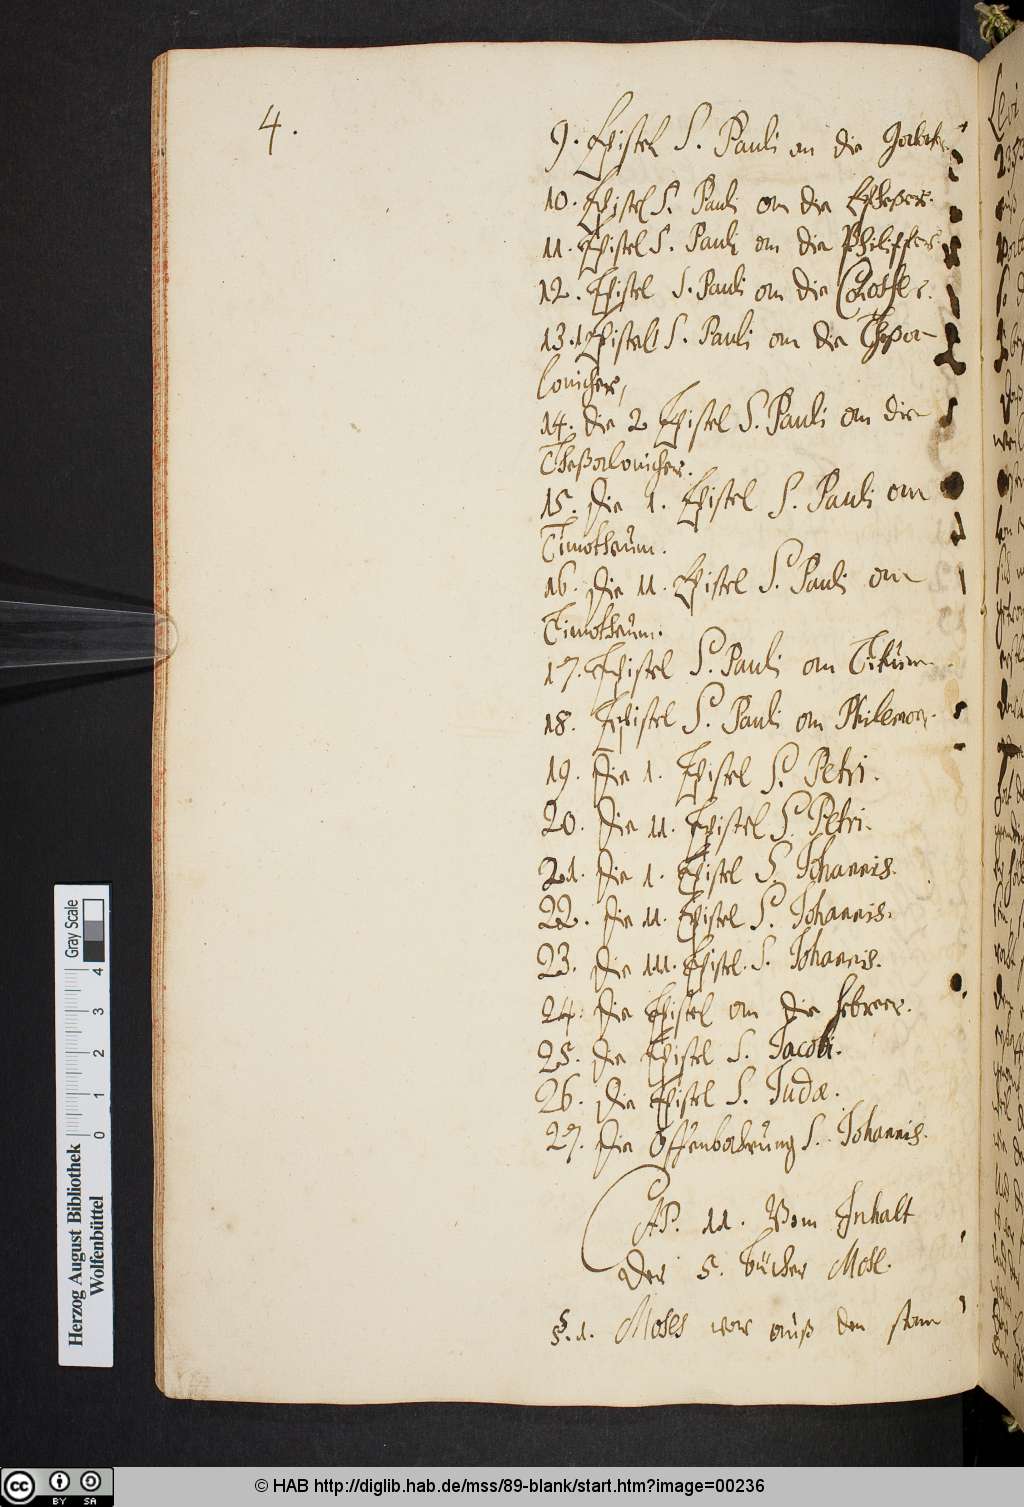 4.
9. Epistel S. Pauli an die Galater
10. Epistel S. Pauli an die Epheßer.
11. Epistel S. Pauli an die Philipper.
12. Epistel S. Pauli an die Coloss
13. Epistel S. Pauli an die Theßa-
lonicher,
14. die 2 Epistel S. Pauli an die
Theßalonicher.
15. Die 1. Epistel S. Pauli an
Timotheum.
16. Die 11. Epistel S. Pauli an
Timotheum.
17. Epistel S. Pauli an Titum.
18. Epistel S. Pauli an Philemon.
19. Die 1. Epistel S. Petri.
20. Die 11. Epistel S. Petri.
21. Die 1. Epistel S. Johannis.
22. Die 11. Epistel S. Johannis.
23. Die 111. Epistel. S. Johannis.
24. Die Epistel an die Hebreer.
25. Die Epistel S. Jacobi.
26. Die Epistel S. Judæ.
27. Die Offenbahrung S. Johannis.
CAP. 11. Vom Inhalt
Der 5. Bücher Mose.
§. 1. Moses war auß den stam
Herzog August Bibliothek
Wolfenbüttel
0 1 2 3 4
Gray Scale
© HAB http://diglib.hab.de/mss/89-blank/start.htm?image=00236
cc BY SA